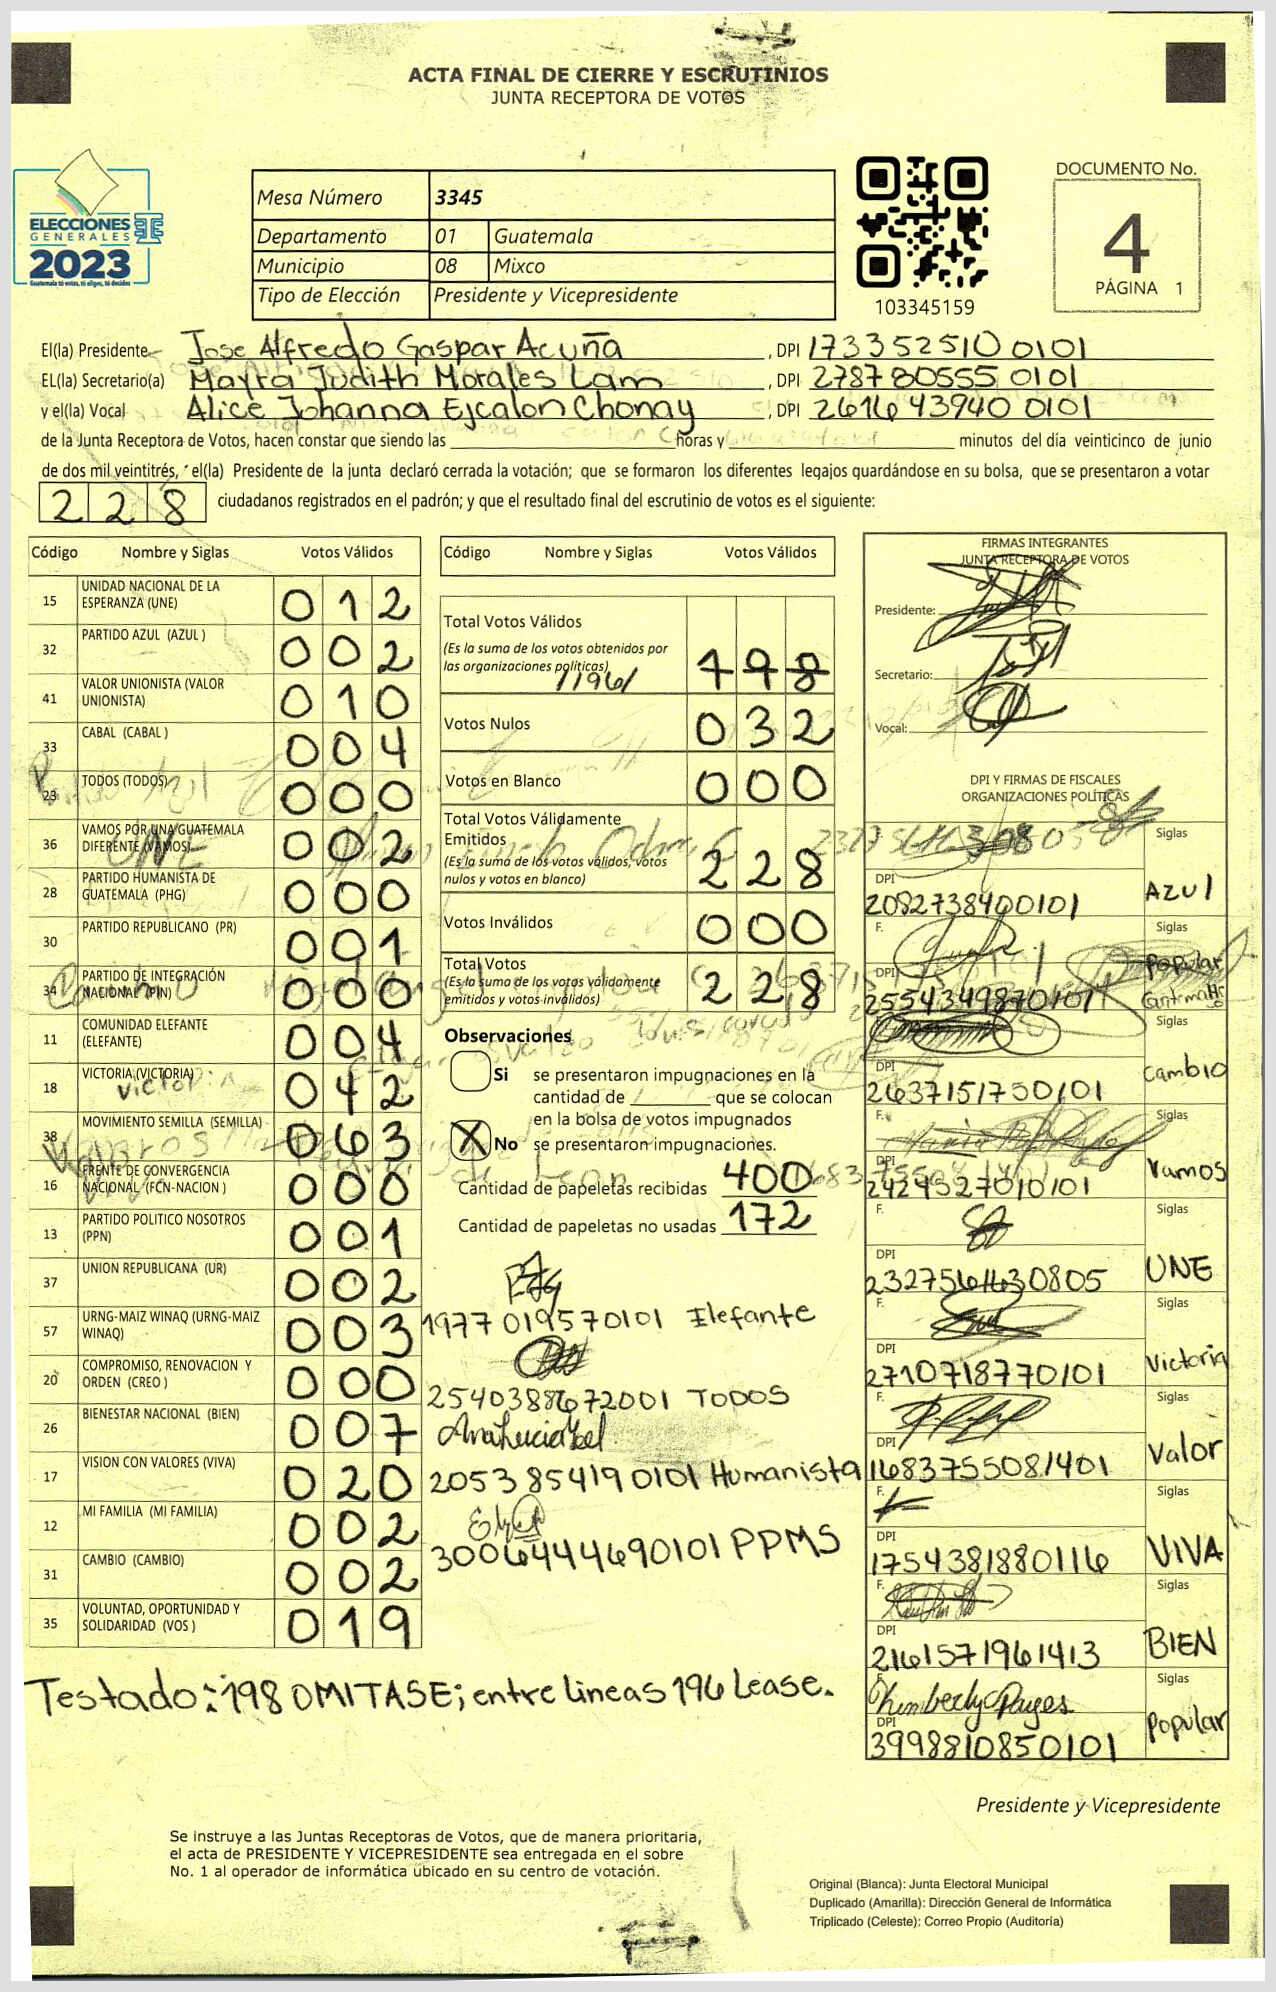 ACTA FINAL DE CIERRE Y ESCRUTINIOS
JUNTA RECEPTORA DE VOTOS
ELECCIONES
GENERALES
2023
Guatemala tú votas, tú eliges, tú decides
Mesa Número 3345
Departamento 01 Guatemala
Municipio 08 Mixco
Tipo de Elección Presidente y Vicepresidente
103345159
DOCUMENTO No.
4
PÁGINA 1
El(la) Presidente Jose Alfredo Gaspar Acuña , DPI 173352510 0101
EL(la) Secretario(a) Mayra Judith Morales Lam , DPI 278780555 0101
y el(la) Vocal Alice Johanna Ejcalon Chonay , DPI 261643940 0101
de la Junta Receptora de Votos, hacen constar que siendo las horas y minutos del día veinticinco de junio
de dos mil veintitrés, el(la) Presidente de la junta declaró cerrada la votación; que se formaron los diferentes legajos quardándose en su bolsa, que se presentaron a votar
228 ciudadanos registrados en el padrón; y que el resultado final del escrutinio de votos es el siguiente:
Código Nombre y Siglas Votos Válidos
15 UNIDAD NACIONAL DE LA ESPERANZA (UNE) 012
32 PARTIDO AZUL (AZUL ) 002
41 VALOR UNIONISTA (VALOR UNIONISTA) 010
33 CABAL (CABAL ) 004
23 TODOS (TODOS) 000
36 VAMOS POR UNA GUATEMALA DIFERENTE (VAMOS) 002
28 PARTIDO HUMANISTA DE GUATEMALA (PHG) 000
30 PARTIDO REPUBLICANO (PR) 001
34 PARTIDO DE INTEGRACIÓN NACIONAL (PIN) 000
11 COMUNIDAD ELEFANTE (ELEFANTE) 004
18 VICTORIA (VICTORIA) 042
38 MOVIMIENTO SEMILLA (SEMILLA) 063
16 FRENTE DE CONVERGENCIA NACIONAL (FCN-NACION ) 000
13 PARTIDO POLITICO NOSOTROS (PPN) 001
37 UNION REPUBLICANA (UR) 002
57 URNG-MAIZ WINAQ (URNG-MAIZ WINAQ) 003
20 COMPROMISO, RENOVACION Y ORDEN (CREO ) 000
26 BIENESTAR NACIONAL (BIEN) 007
17 VISION CON VALORES (VIVA) 020
12 MI FAMILIA (MI FAMILIA) 002
31 CAMBIO (CAMBIO) 002
35 VOLUNTAD, OPORTUNIDAD Y SOLIDARIDAD (VOS ) 019
Testado: 198 OMITASE; entre lineas 196 Lease.
Código Nombre y Siglas Votos Válidos
Total Votos Válidos
(Es la suma de los votos obtenidos por
las organizaciones políticas)
//196/ 198
Votos Nulos 032
Votos en Blanco 000
Total Votos Válidamente
Emitidos
(Es la suma de los votos válidos, votos
nulos y votos en blanco) 228
Votos Inválidos 000
Total Votos
(Es la suma de los votos válidamente
emitidos y votos inválidos) 228
Observaciones
Si se presentaron impugnaciones en la
cantidad de que se colocan
en la bolsa de votos impugnados
X No se presentaron impugnaciones.
Cantidad de papeletas recibidas 400
Cantidad de papeletas no usadas 172
1977 019570101 Elefante
2540388672001 TODOS
2053854190101 Humanista
3006444690101 PPMS
FIRMAS INTEGRANTES
JUNTA RECEPTORA DE VOTOS
Presidente:
Secretario:
Vocal:
DPI Y FIRMAS DE FISCALES
ORGANIZACIONES POLÍTICAS
Siglas
DPI
2082738400101 AZUl
F. Siglas
DPI Popular
2554349870101
Siglas
DPI
2637151750101 Cambio
F. Siglas
DPI
2424527010101 Vamos
F. Siglas
DPI
2327561630805 UNE
F. Siglas
DPI
2710718770101 Victoria
F. Siglas
DPI
1683755081401 Valor
F. Siglas
DPI
1754381880116 VIVA
F. Siglas
DPI
2161571961413 BIEN
F. Siglas
Khimberly Payes
DPI
3998810850101 Popular
Presidente y Vicepresidente
Se instruye a las Juntas Receptoras de Votos, que de manera prioritaria,
el acta de PRESIDENTE Y VICEPRESIDENTE sea entregada en el sobre
No. 1 al operador de informática ubicado en su centro de votación.
Original (Blanca): Junta Electoral Municipal
Duplicado (Amarilla): Dirección General de Informática
Triplicado (Celeste): Correo Propio (Auditoría)